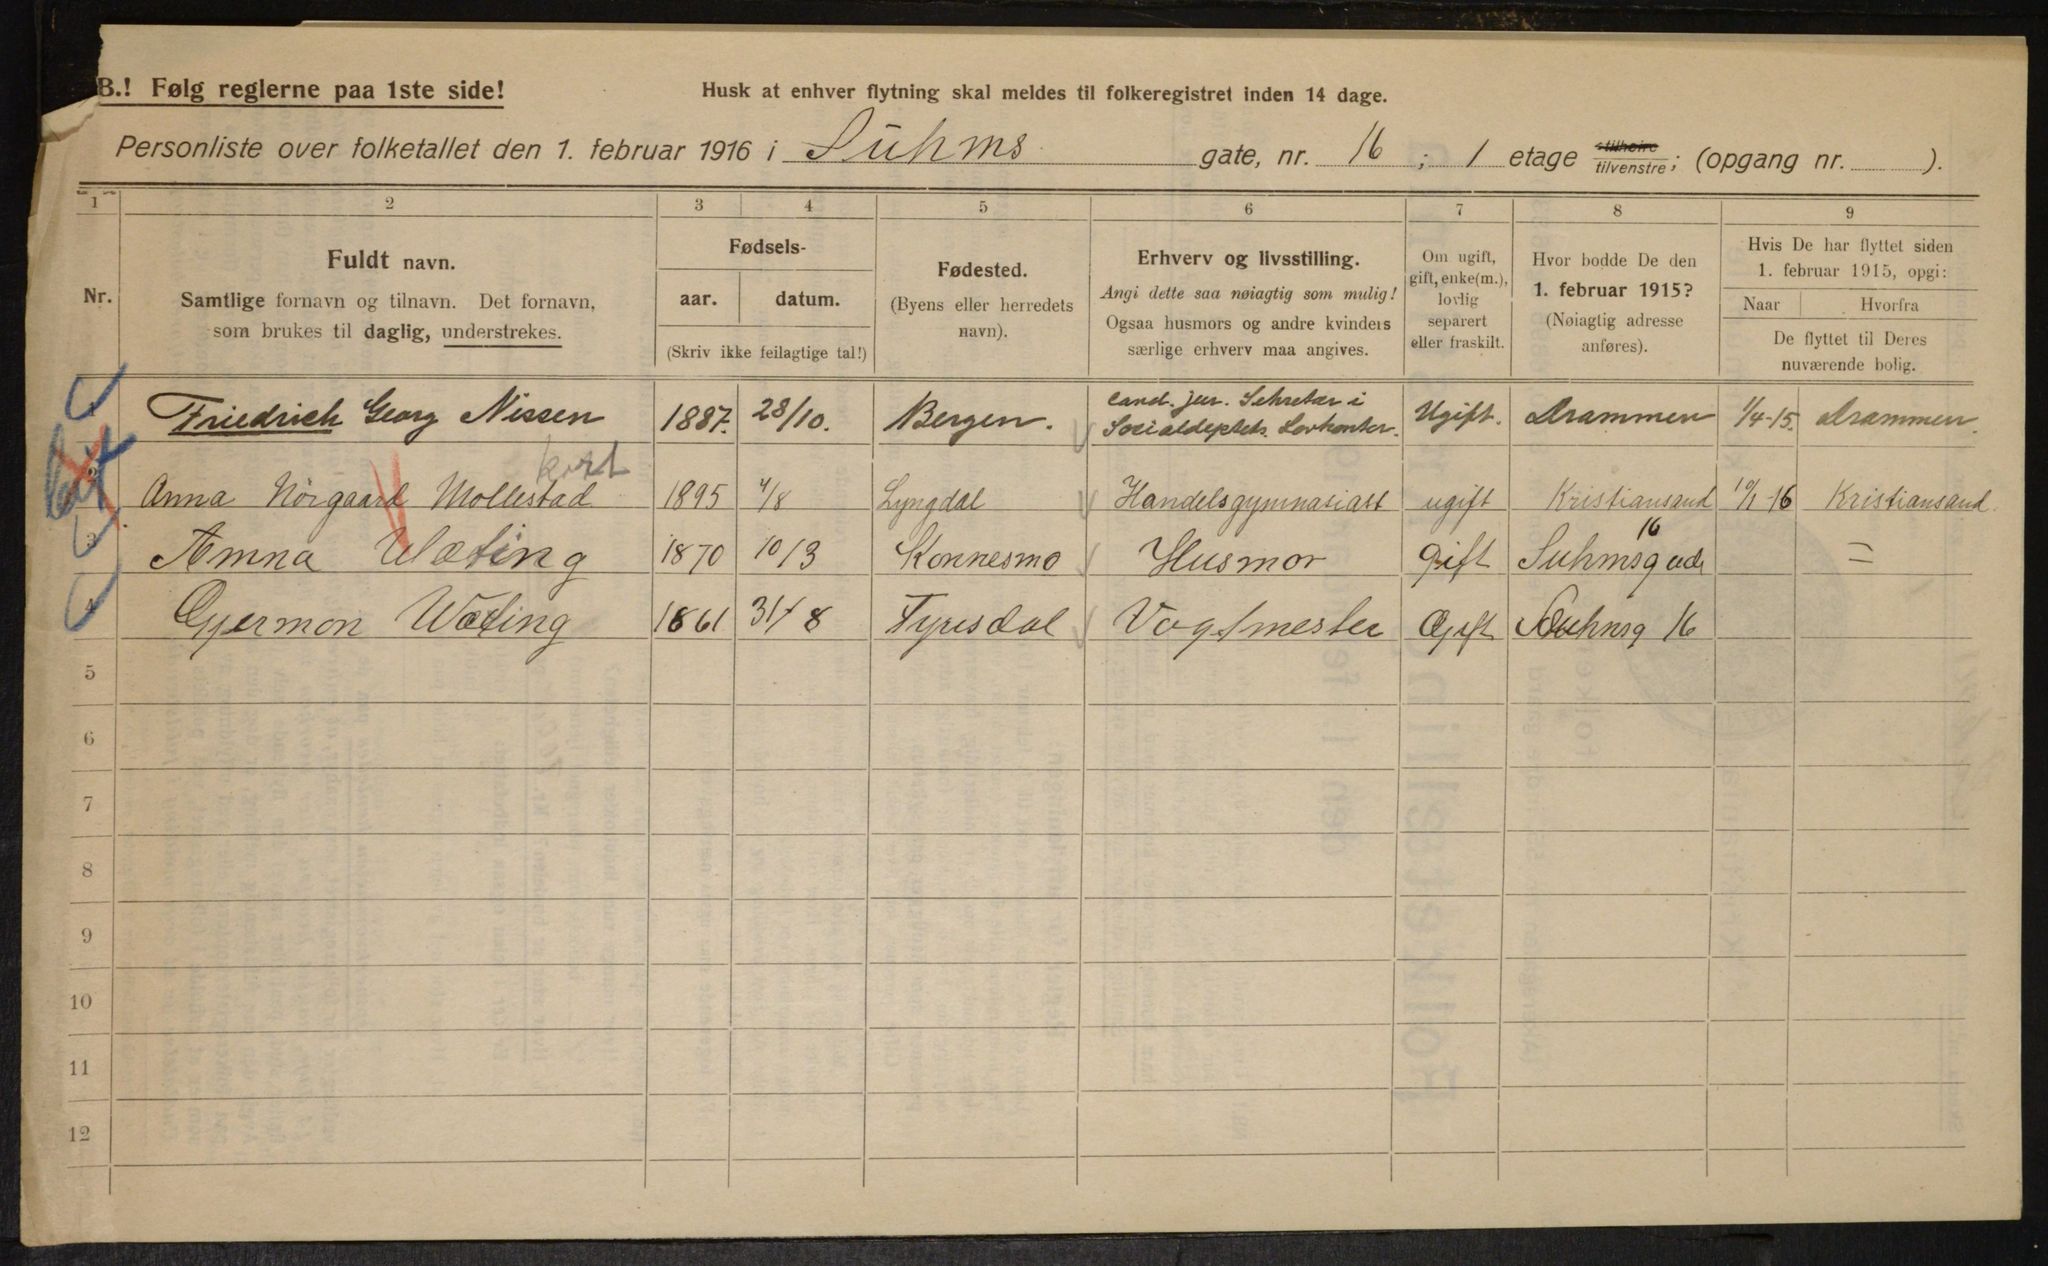 B.! Følg reglerne paa 1ste side!
Husk at enhver flytning skal meldes til folkeregistret inden 14 dage.
Personliste over folketallet den 1. februar 1916 i Suhms gate, nr. 16 ; 1 etage tilhøire tilvenstre; (opgang nr. ).
1 2 3 4 5 6 7 8 9
Nr.
Fuldt navn.
Samtlige fornavn og tilnavn. Det fornavn,
som brukes til daglig, understrekes.
Fødsels-
aar. datum.
(Skriv ikke feilagtige tal!)
Fødested.
(Byens eller herredets
navn).
Erhverv og livsstilling.
Angi dette saa nøiagtig som mulig!
Ogsaa husmors og andre kvinders
særlige erhverv maa angives.
Om ugift,
gift, enke(m.),
lovlig
separert
eller fraskilt.
Hvor bodde De den
1. februar 1915?
(Nøiagtig adresse
anføres).
Hvis De har flyttet siden
1. februar 1915, opgi:
Naar Hvorfra
De flyttet til Deres
nuværende bolig.
Friedrich Georg Nissen 1887. 28/10. Bergen. cand. jur. Sekretær i Socialdeptets. Lovkontor. Ugift. Drammen 1/4-15. Drammen.
kort
2 Anna Nørgaard Mollestad 1895 4/8 Lyngdal Handelsgymnasiast ugift Kristiansand 10/1-16 Kristiansand.
3 Anna Wæting 1870 10/3 Konnesmo Husmor Gift Suhmsgade 16 =
4 Gjermon Wæting 1861 31/8 Fyresdal Vogtmester Gift Suhmsg 16
5
6
7
8
9
10
11
12